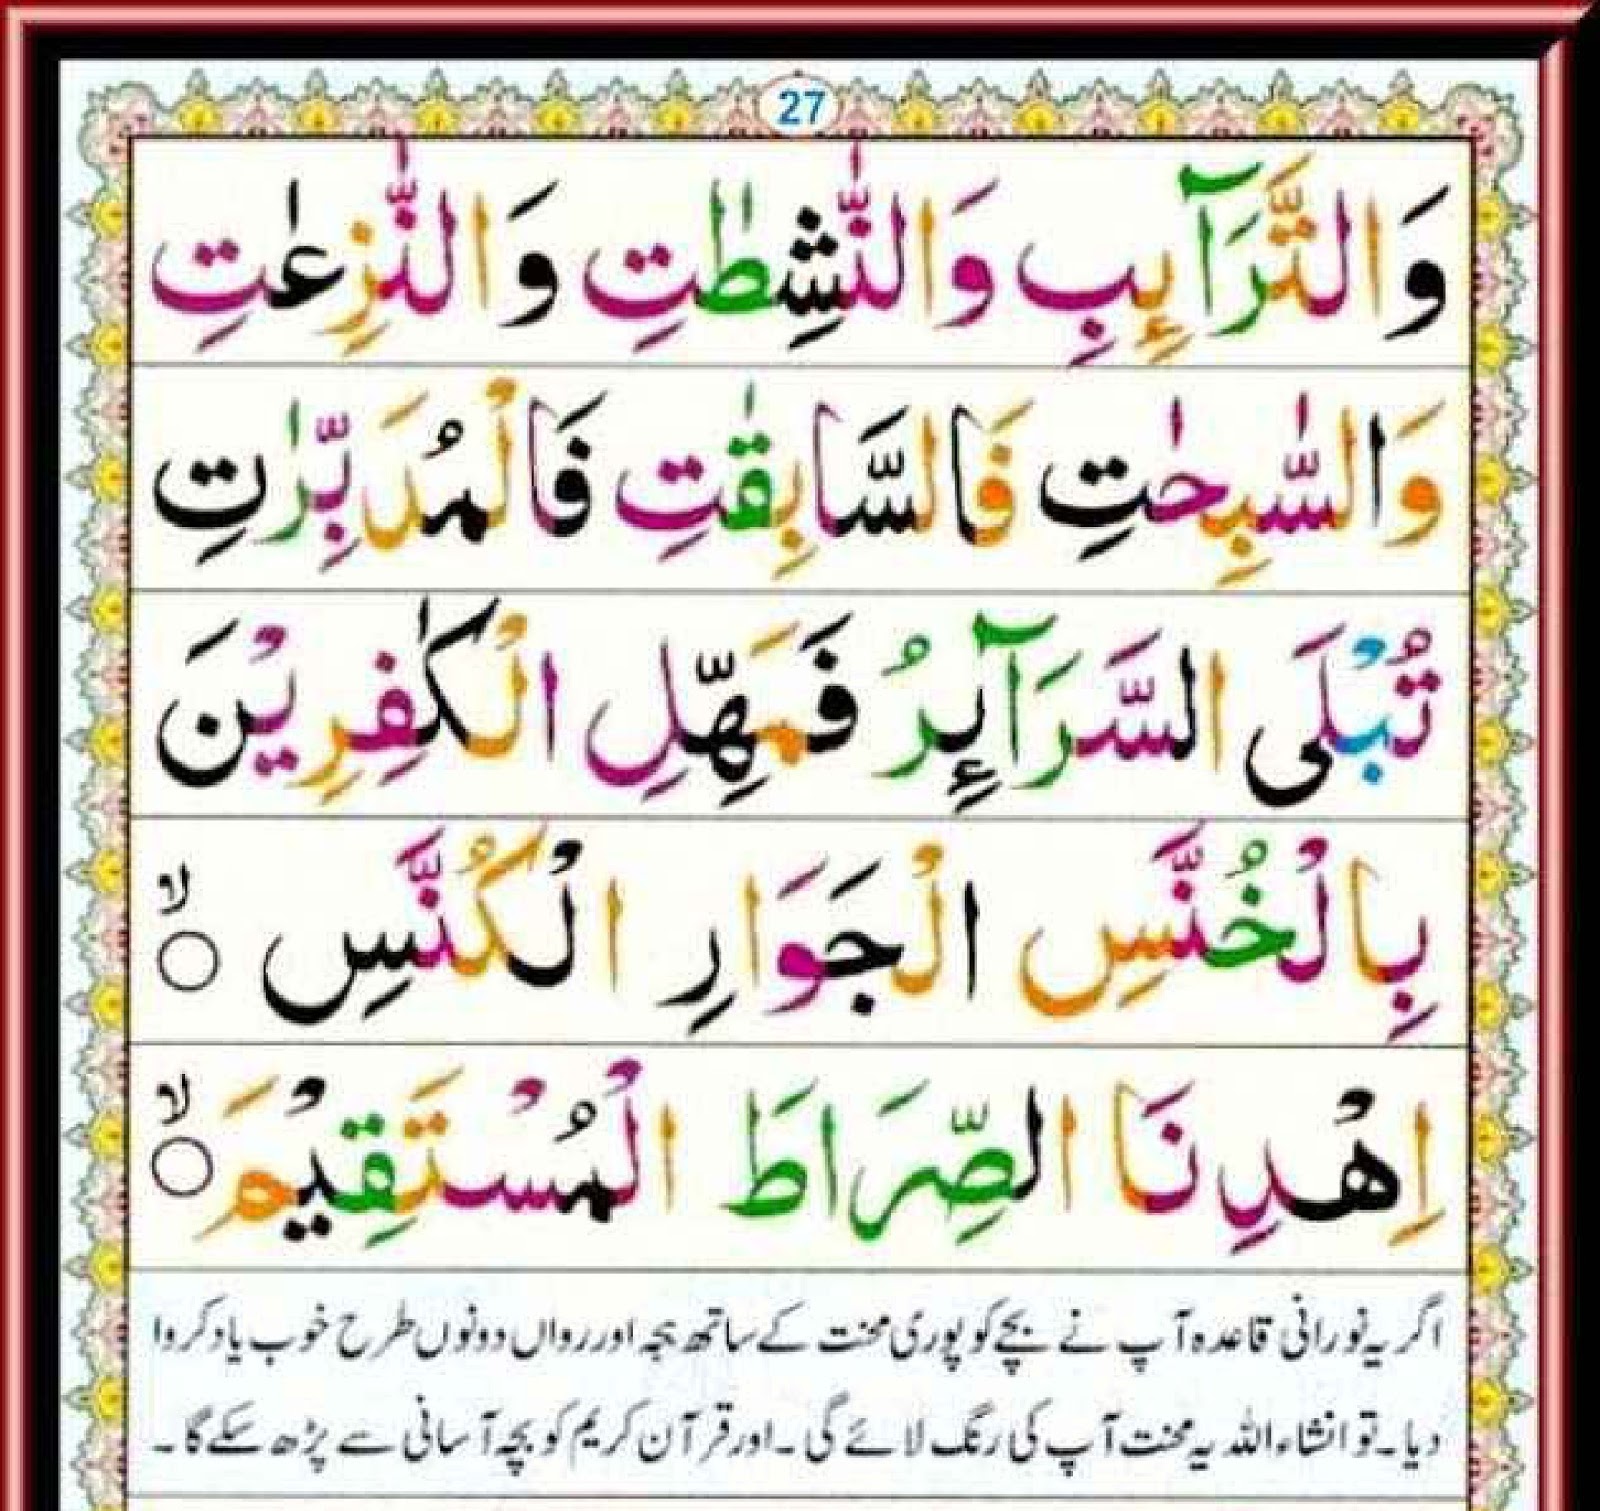 27
وَالتَّرَآىِٕبِ وَالنّٰشِطٰتِ وَالنّٰزِعٰتِ
وَالسّٰبِحٰتِ فَالسَّابِقٰتِ فَالْمُدَبِّرٰتِ
تُبْلَى السَّرَآىِٕرُ فَمَهِّلِ الْكٰفِرِيْنَ
بِالْخُنَّسِ الْجَوَارِ الْكُنَّسِ ۙ
اِهْدِنَا الصِّرَاطَ الْمُسْتَقِيْمَ ۙ
اگر یہ نورانی قاعدہ آپ نے بچے کو پوری محنت کے ساتھ ہجہ اور رواں دونوں طرح خوب یاد کروا
دیا۔ تو انشاء اللہ یہ محنت آپ کی رنگ لائے گی۔ اور قرآن کریم کو بچہ آسانی سے پڑھ سکے گا۔